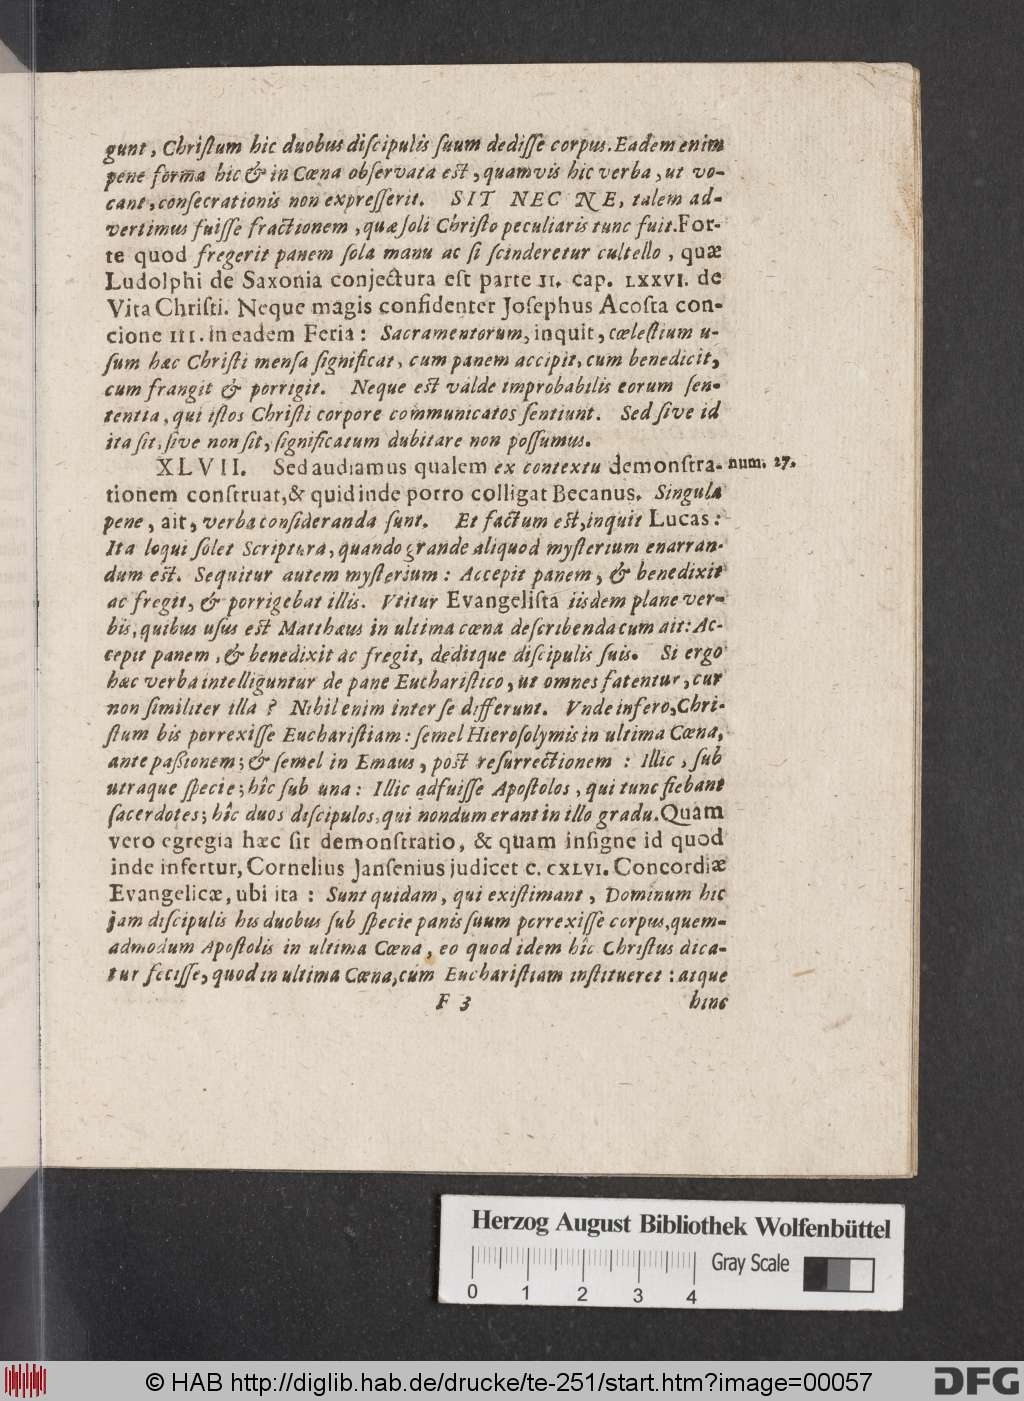 gunt, Chriſtum hic duobus diſcipulis ſuum dediſſe corpus. Eadem enim
pene forma hic & in Cœna obſervata eſt, quamvis hic verba, ut vo-
cant, conſecrationis non expreſſerit. SIT NEC NE, talem ad-
vertimus fuiſſe fractionem, quæ ſoli Chriſto peculiaris tunc fuit. For-
te quod fregerit panem ſola manu ac ſi ſcinderetur cultello, quæ
Ludolphi de Saxonia conjectura eſt parte II. cap. LXXVI. de
Vita Chriſti. Neque magis confidenter Joſephus Acoſta con-
cione III. in eadem Feria: Sacramentorum, inquit, cœleſtium u-
ſum hæc Chriſti menſa ſignificat, cum panem accipit, cum benedicit,
cum frangit & porrigit. Neque eſt valde improbabilis eorum ſen-
tentia, qui iſtos Chriſti corpore communicatos ſentiunt. Sed ſive id
ita ſit, ſive non ſit, ſignificatum dubitare non poſſumus.
XLVII. Sed audiamus qualem ex contextu demonſtra- num. 27.
tionem conſtruat, & quid inde porro colligat Becanus. Singula
pene, ait, verba conſideranda ſunt. Et factum eſt, inquit Lucas:
Ita loqui ſolet Scriptura, quando grande aliquod myſterium enarran-
dum eſt. Sequitur autem myſterium: Accepit panem, & benedixit
ac fregit, & porrigebat illis. Vtitur Evangeliſta iisdem plane ver-
bis, quibus uſus eſt Matthæus in ultima cœna deſcribenda cum ait: Ac-
cepit panem, & benedixit ac fregit, deditque diſcipulis ſuis. Si ergo
hæc verba intelliguntur de pane Euchariſtico, ut omnes fatentur, cur
non ſimiliter illa? Nihil enim inter ſe differunt. Vnde infero, Chri-
ſtum bis porrexiſſe Euchariſtiam: ſemel Hieroſolymis in ultima Cœna,
ante paßionem; & ſemel in Emaus, poſt reſurrectionem: Illic, ſub
utraque ſpecie; hîc ſub una: Illic adfuiſſe Apoſtolos, qui tunc fiebant
ſacerdotes; hîc duos diſcipulos, qui nondum erant in illo gradu. Quam
vero egregia hæc ſit demonſtratio, & quam inſigne id quod
inde infertur, Cornelius Janſenius judicet c. CXLVI. Concordiæ
Evangelicæ, ubi ita: Sunt quidam, qui exiſtimant, Dominum hic
jam diſcipulis his duobus ſub ſpecie panis ſuum porrexiſſe corpus, quem-
admodum Apoſtolis in ultima Cœna, eo quod idem hîc Chriſtus dica-
tur feciſſe, quod in ultima Cœna, cùm Euchariſtiam inſtitueret: atque
F 3 hinc
Herzog August Bibliothek Wolfenbüttel
Gray Scale
0 1 2 3 4
© HAB http://diglib.hab.de/drucke/te-251/start.htm?image=00057
DFG